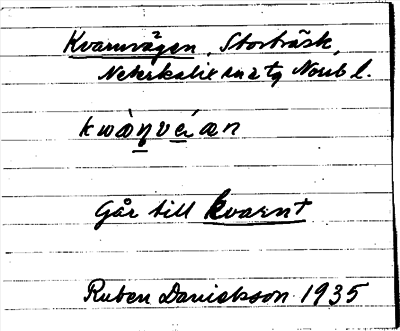 Kvarnvägen, Storträsk,
Nederkalix sn Norrb l.
kwàɳvéian
Går till kvarnt
Ruben Danielsson 1935